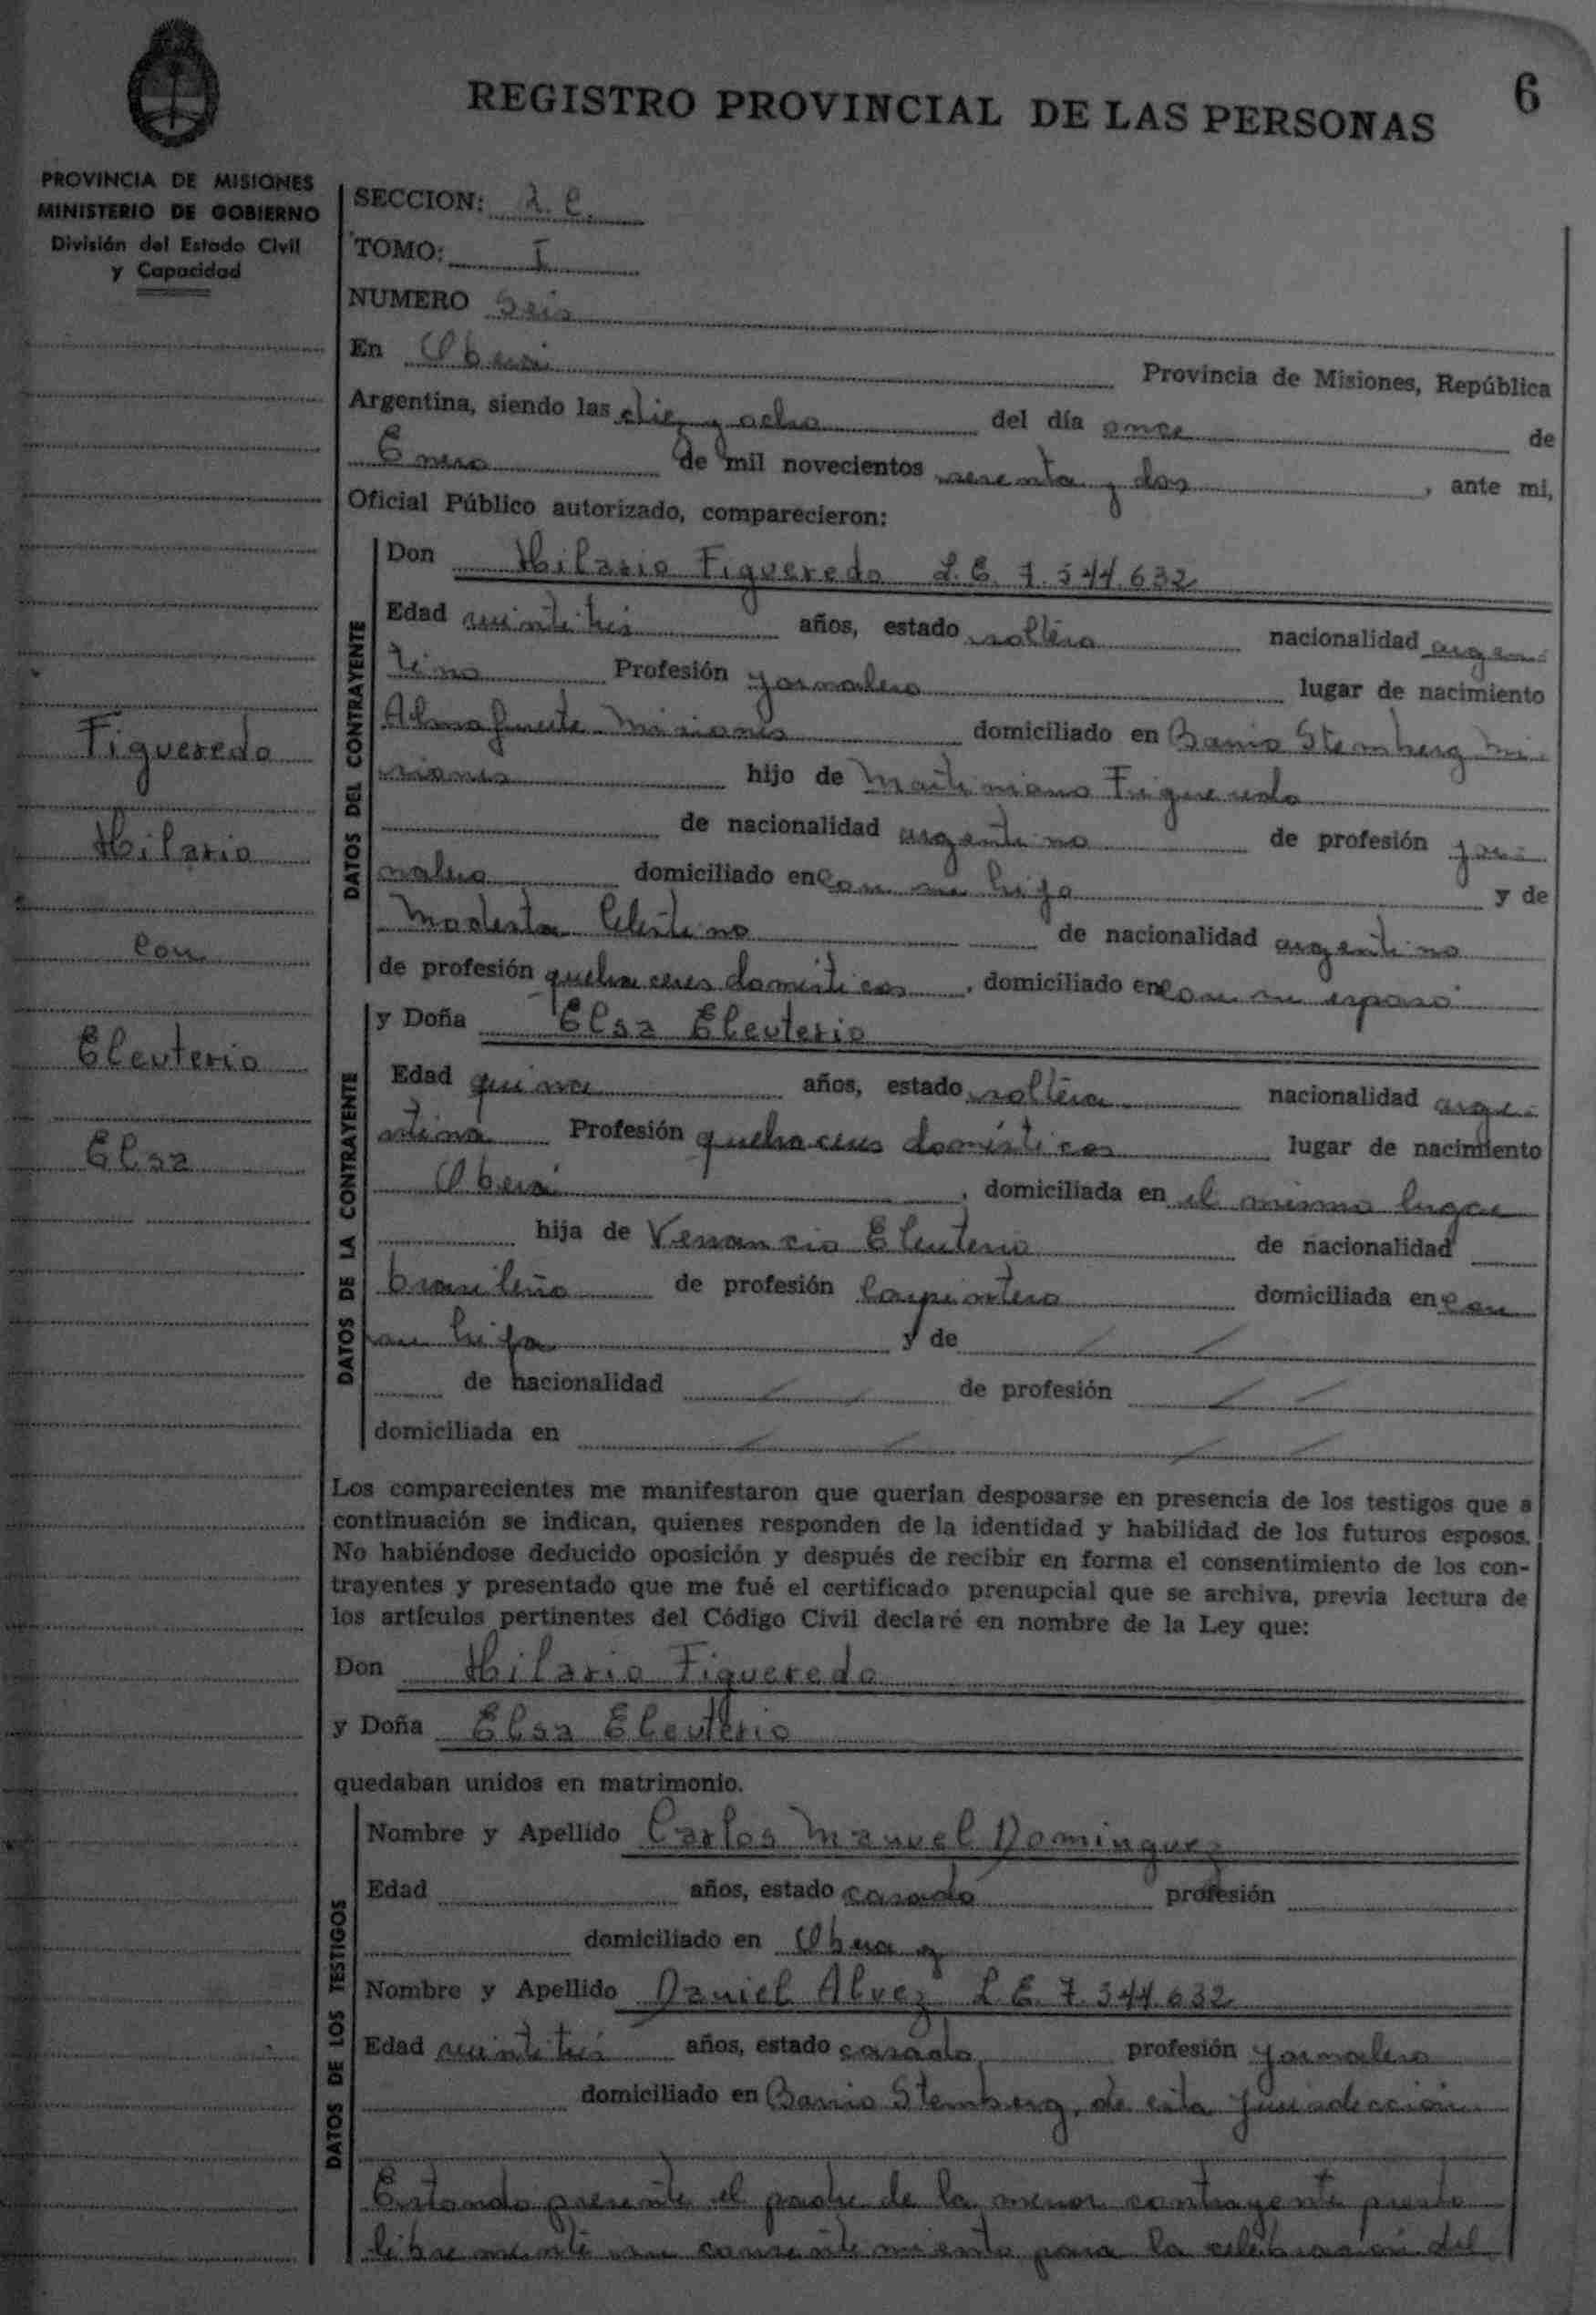 REGISTRO PROVINCIAL DE LAS PERSONAS
6
PROVINCIA DE MISIONES
MINISTERIO DE GOBIERNO
División del Estado Civil
y Capacidad
SECCION:
TOMO: I
NUMERO Seis
En Oberá Provincia de Misiones, República
Argentina, siendo las diez y ocho del día once de
Enero de mil novecientos sesenta y dos, ante mi,
Oficial Público autorizado, comparecieron:
DATOS DEL CONTRAYENTE
Don Hilario Figueredo L.E. 7.544.632
Edad veintitrés años, estado soltero nacionalidad argen-
tino Profesión jornalero lugar de nacimiento
Almafuerte Misiones domiciliado en Barrio Stemberg Mi-
siones hijo de Martimiano Figueredo
de nacionalidad argentino de profesión jor-
nalero domiciliado en con su hijo y de
Modesta Celestino de nacionalidad argentino
de profesión quehaceres domésticos, domiciliado en con su esposo
DATOS DE LA CONTRAYENTE
y Doña Elsa Eleuterio
Edad quince años, estado soltera nacionalidad arge-
ntina Profesión quehaceres domésticos lugar de nacimiento
Oberá, domiciliada en el mismo lugar
hija de Venancio Eleuterio de nacionalidad
brasileño de profesión Carpintero domiciliada en con
su hija y de / /
de nacionalidad / / de profesión / /
domiciliada en / / / /
Los comparecientes me manifestaron que querían desposarse en presencia de los testigos que a
continuación se indican, quienes responden de la identidad y habilidad de los futuros esposos.
No habiéndose deducido oposición y después de recibir en forma el consentimiento de los con-
trayentes y presentado que me fué el certificado prenupcial que se archiva, previa lectura de
los artículos pertinentes del Código Civil declaré en nombre de la Ley que:
Don Hilario Figueredo
y Doña Elsa Eleuterio
quedaban unidos en matrimonio.
DATOS DE LOS TESTIGOS
Nombre y Apellido Carlos Manuel Dominguez
Edad años, estado casado profesión
domiciliado en Obera y
Nombre y Apellido Daniel Alvez L.E. 7.544.632
Edad veintitrés años, estado casado profesión jornalero
domiciliado en Barrio Stemberg, de esta jurisdección
Estando presente el padre de la menor contrayente presto
libremente su consentimiento para la celebración del
Figueredo
Hilario
con
Eleuterio
Elsa